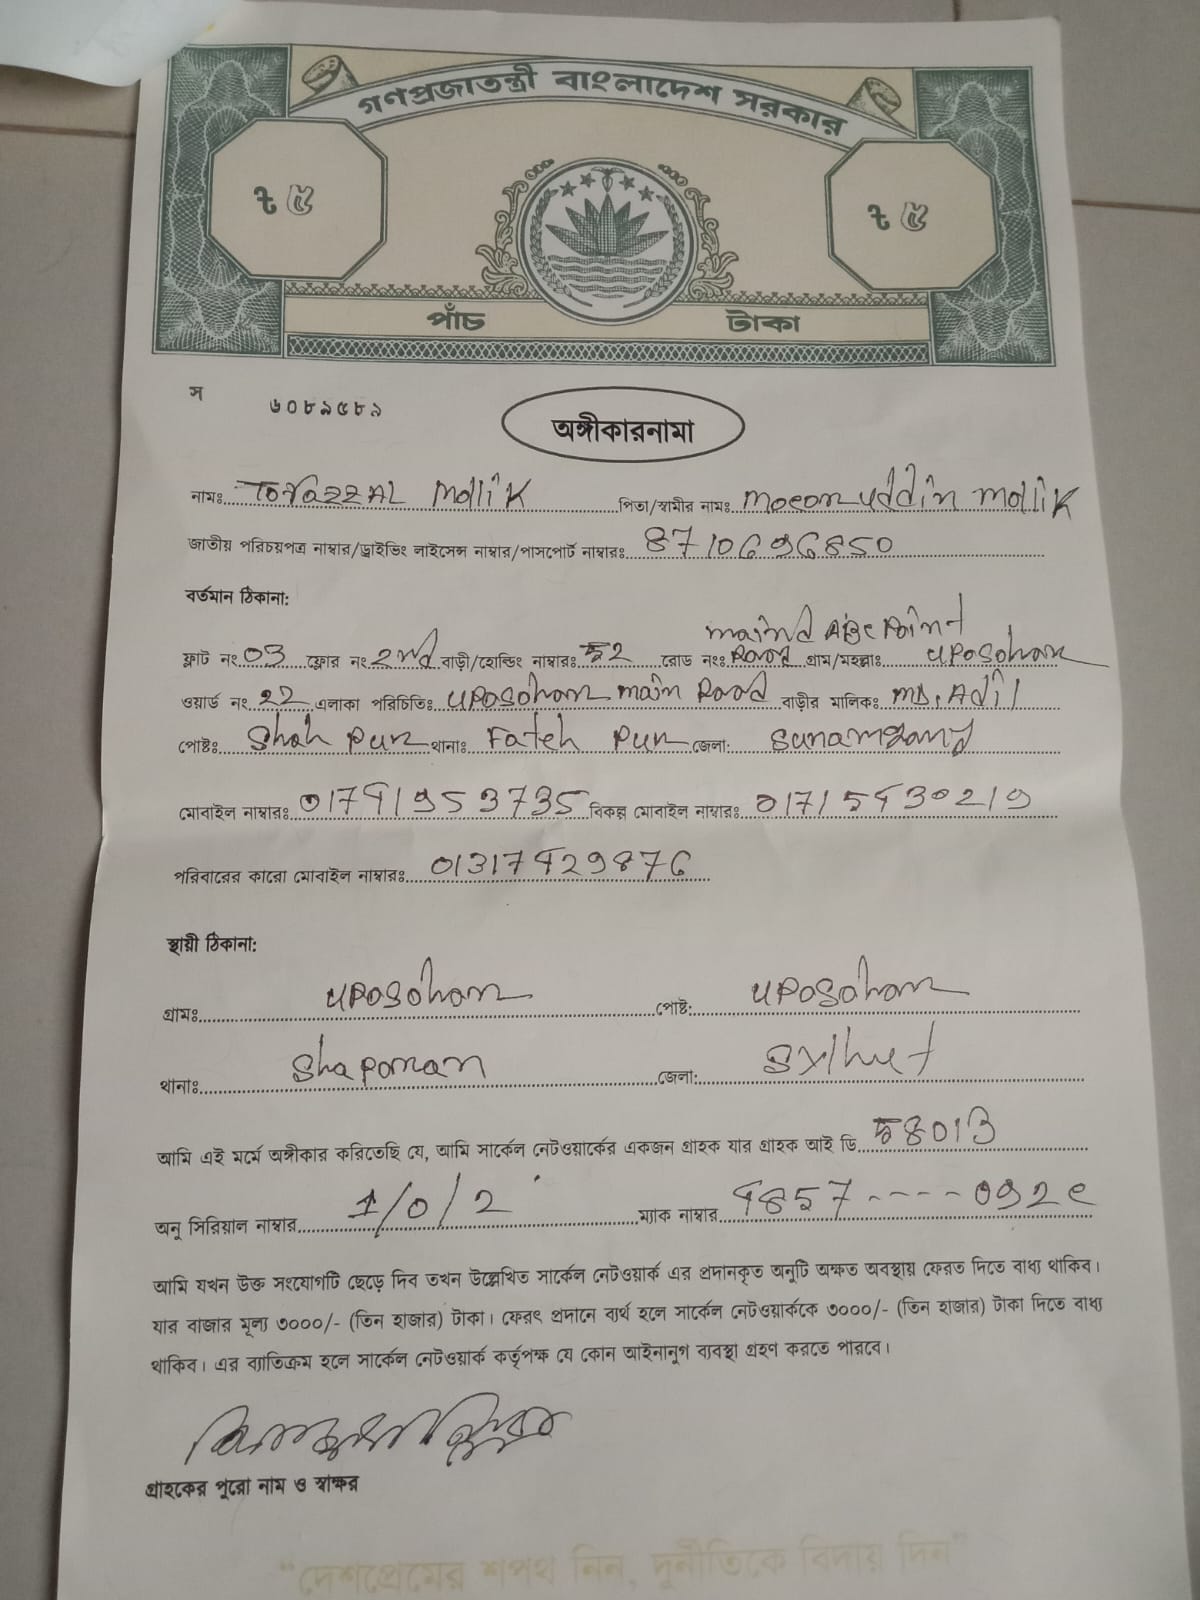 গণপ্রজাতন্ত্রী বাংলাদেশ সরকার
৳ ৫ ৳ ৫
পাঁচ টাকা
স ৬০৮৯৫৮৯
অঙ্গীকারনামা
নামঃ Tofazzal Mollik পিতা/স্বামীর নামঃ Moeonuddin Mollik
জাতীয় পরিচয়পত্র নাম্বার/ড্রাইভিং লাইসেন্স নাম্বার/পাসপোর্ট নাম্বারঃ 8710696850
বর্তমান ঠিকানা:
ABC Point
ফ্লাট নং 03 ফ্লোর নং 2nd বাড়ী/হোল্ডিং নাম্বারঃ 52 রোড নংঃ Road গ্রাম/মহল্লাঃ Uposohor
ওয়ার্ড নং 22 এলাকা পরিচিতিঃ Uposohor main Road বাড়ীর মালিকঃ MD. Adil
পোষ্টঃ Shah Pur থানাঃ Fateh Pur জেলা: Sunamgonj
মোবাইল নাম্বারঃ 01741953735 বিকল্প মোবাইল নাম্বারঃ 01715430219
পরিবারের কারো মোবাইল নাম্বারঃ 01317429876
স্থায়ী ঠিকানা:
গ্রামঃ Uposohor পোষ্ট: Uposohor
থানাঃ Shaporan জেলা: Sylhet
আমি এই মর্মে অঙ্গীকার করিতেছি যে, আমি সার্কেল নেটওয়ার্কের একজন গ্রাহক যার গ্রাহক আই ডি 58013
অনু সিরিয়াল নাম্বার 1/0/2 ম্যাক নাম্বার 4857----092e
আমি যখন উক্ত সংযোগটি ছেড়ে দিব তখন উল্লেখিত সার্কেল নেটওয়ার্ক এর প্রদানকৃত অনুটি অক্ষত অবস্থায় ফেরত দিতে বাধ্য থাকিব।
যার বাজার মূল্য ৩০০০/- (তিন হাজার) টাকা। ফেরৎ প্রদানে ব্যর্থ হলে সার্কেল নেটওয়ার্ককে ৩০০০/- (তিন হাজার) টাকা দিতে বাধ্য
থাকিব। এর ব্যাতিক্রম হলে সার্কেল নেটওয়ার্ক কর্তৃপক্ষ যে কোন আইনানুগ ব্যবস্থা গ্রহণ করতে পারবে।
গ্রাহকের পুরো নাম ও স্বাক্ষর
“দেশপ্রেমের শপথ নিন, দুর্নীতিকে বিদায় দিন”